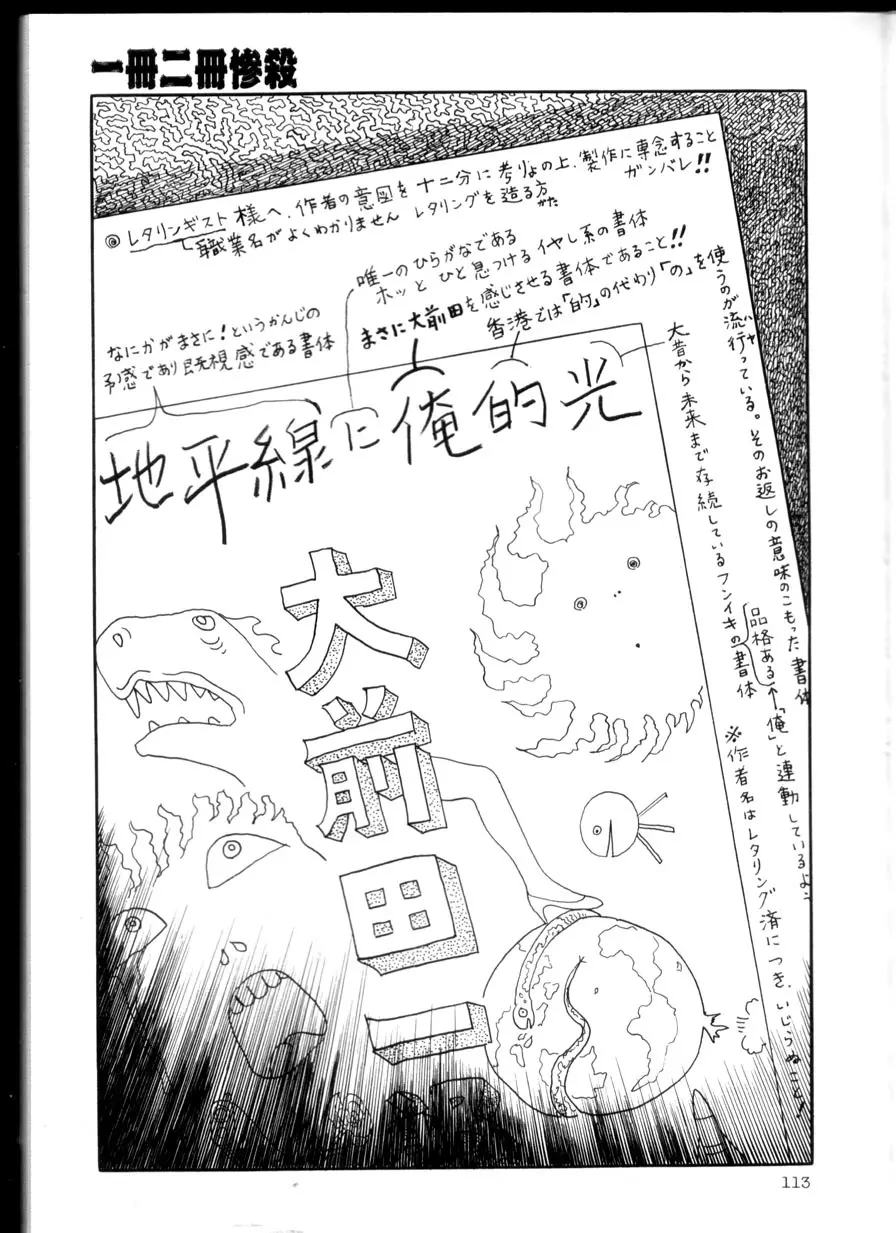 一冊二冊惨殺
◎レタリンギスト様へ、作者の意図を十二分に考りょの上、製作に専念すること
ガンバレ!!
職業名がよくわかりません レタリングを造る方
がた
唯一のひらがなである
ホッとひと息つけるイヤし系の書体
まさに大前田を感じさせる書体であること!!
香港では「的」の代わり「の」を使うのが流行っている。そのお返しの意味のこもった書体
ハヤ
なにかがまさに!というかんじの
予感であり既視感である書体
大昔から未来まで存続しているフンイキの書体
品格ある←「俺」と連動しているよ
地平線に俺的光
※作者名はレタリング済につき、いじらぬこと!
大前田一
113